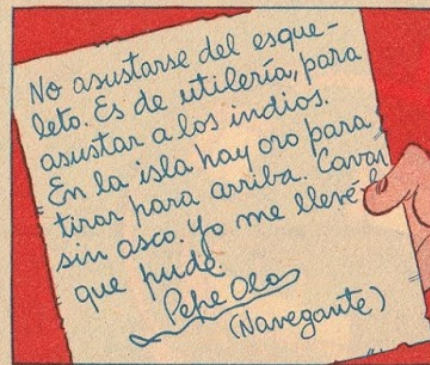 No asustarse del esque-
leto. Es de utilería, para
asustar a los indios.
En la isla hay oro para
tirar para arriba. Cavar
sin asco. Yo me llevé l
que pude.
Pepe Olas
(Navegante)